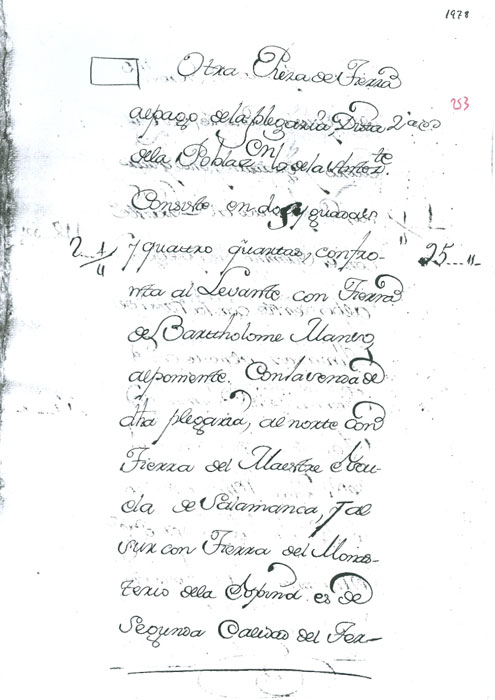 1978
Otra Pieza de Tierra
253
al pago de la plegaria, Dista
de la Poblazon lo de la Antezte.
Consiste en dos yguadas
2 y quattro quartas, confro- 25
nta al Levante con Tierra
de Barttholome Manso,
al poniente. Con la senda de
dha plegaria, al norte con
Tierra del Maestre Escu-
ela de Salamanca, y al
sur con Tierra del Monas-
terio de la Espina es de
Segunda Calidad del Ter-